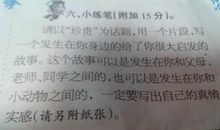 六、小练笔(附加15分)。
请以“珍贵”为话题,用一个片段,写
一个发生在你身边的给了你很大启发的
故事。这个故事可以是发生在你和父母、
老师、同学之间的,也可以是发生在你和
小动物之间的,一定要写出自己的真情
实感(请另附纸张)。